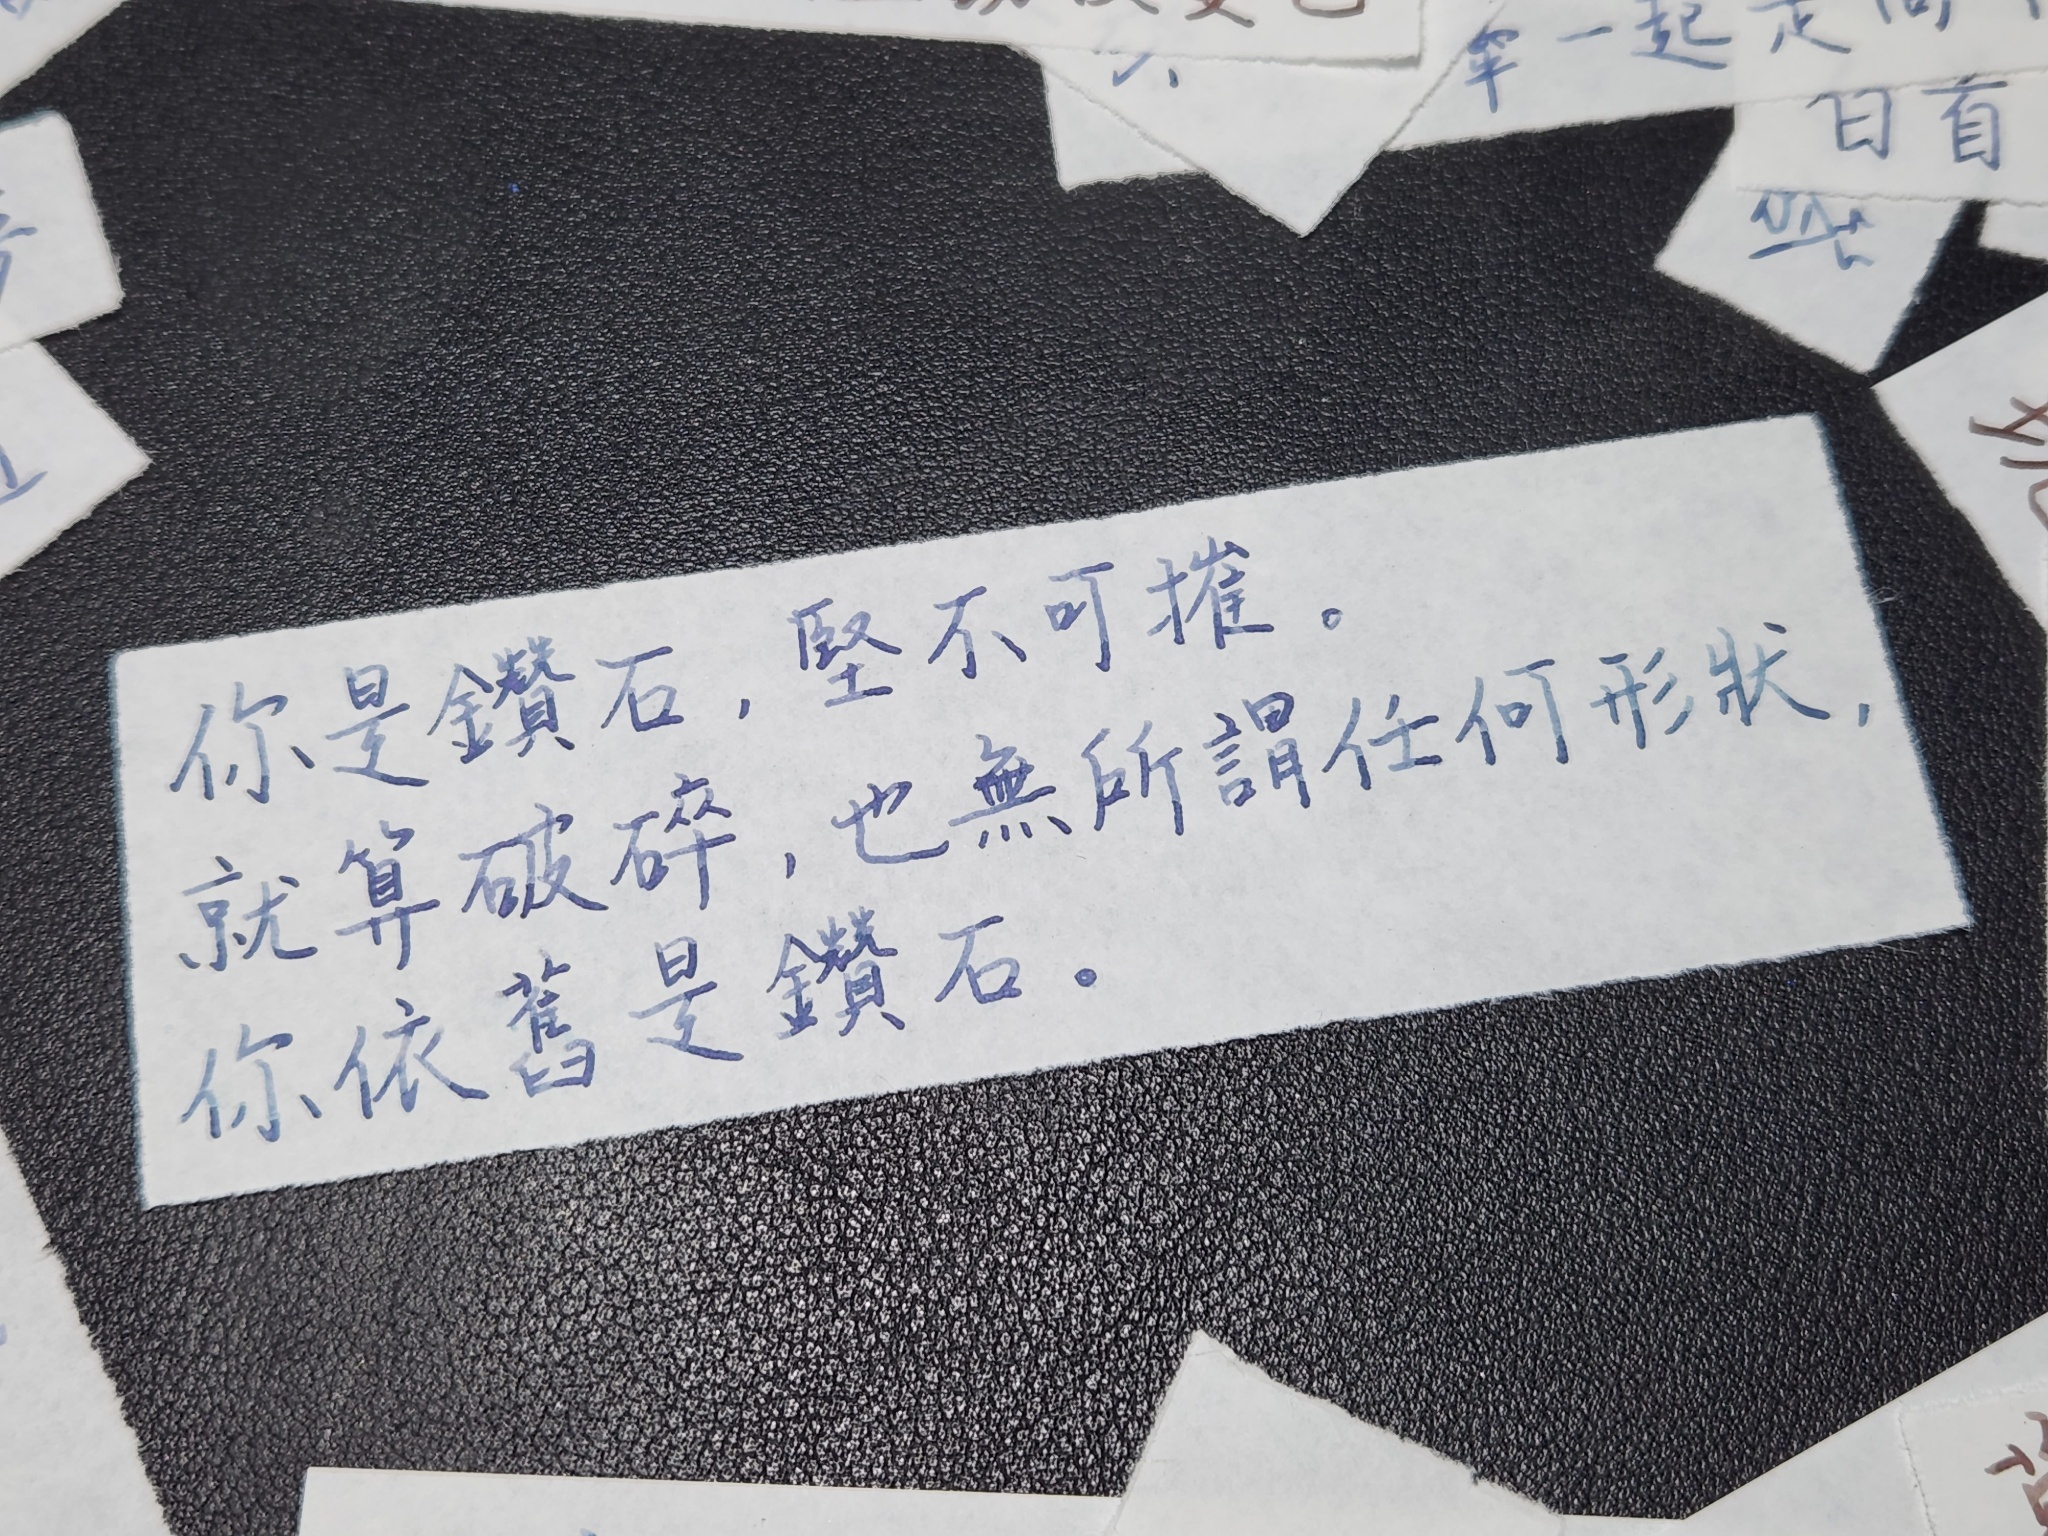 一起走向
白首
你是鑽石，堅不可摧。
就算破碎，也無所謂任何形狀，
你依舊是鑽石。